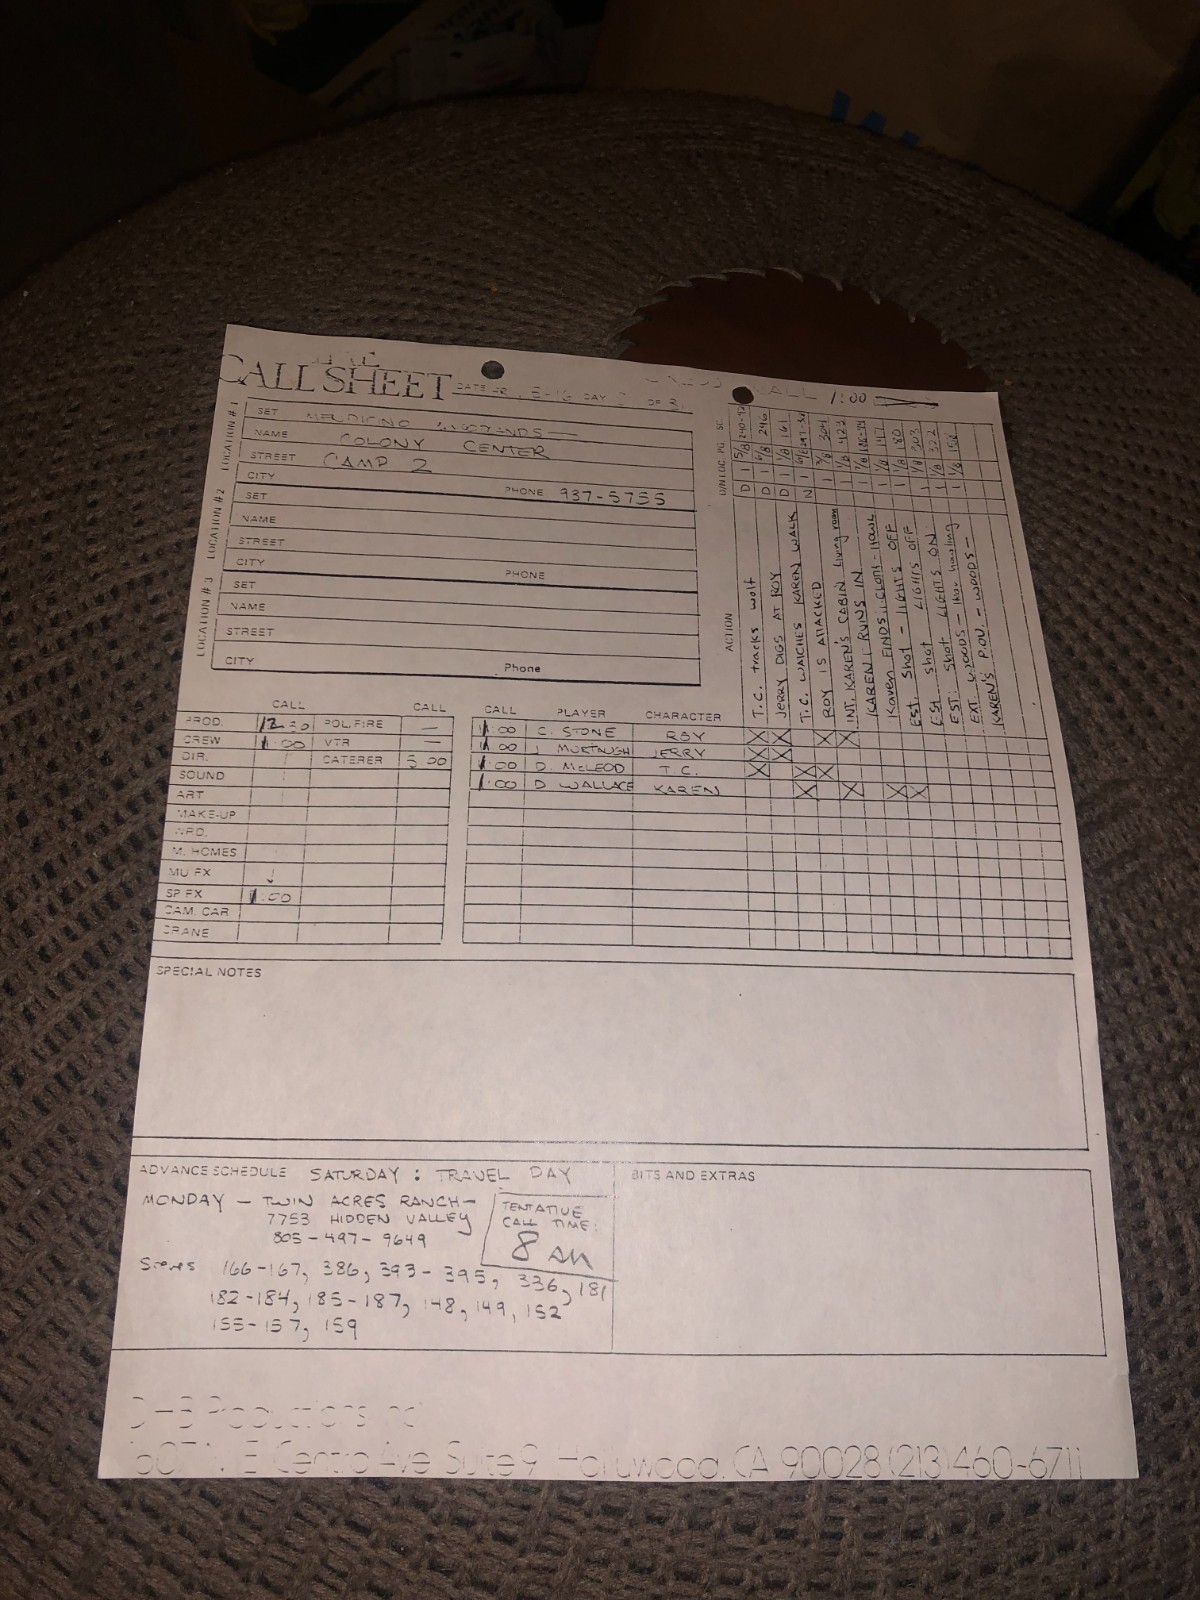 CALL SHEET
DAY OF
CALL 1:00
LOCATION #1
SET
NAME COLONY CENTER
STREET CAMP 2
CITY PHONE 937-5755
LOCATION #2
SET
NAME
STREET
CITY PHONE
LOCATION #3
SET
NAME
STREET
CITY Phone
D/N LOC. PG. SC.
ACTION
D 1 5/8 T.C. tracks wolf
D 1 6/8 246 JERRY DIGS AT ROY
D 1 1/8 161 T.C. WATCHES KAREN WALK
N 1 ROY IS ATTACKED
INT. KAREN'S CABIN living room
KAREN RUNS IN
Karen FINDS CLOTH - HOWL
Est. Shot - LIGHTS OFF
Est. shot LIGHTS OFF
EST. Shot LIGHTS ON
EXT. WOODS - howling
KAREN'S P.O.V. - WOODS -
CALL CALL
PROD. POL.FIRE —
CREW 1:00 VTR —
DIR. CATERER 5:00
SOUND
ART
MAKE-UP
WRD.
M. HOMES
MU FX
SP FX 1:00
CAM. CAR
CRANE
CALL PLAYER CHARACTER
1:00 C. STONE ROY
1:00 J. MURTAUGH JERRY
1:00 D. McLEOD T.C.
1:00 D WALLACE KAREN
SPECIAL NOTES
ADVANCE SCHEDULE SATURDAY : TRAVEL DAY
MONDAY — TWIN ACRES RANCH—
7753 HIDDEN VALLEY
805-497-9649
TENTATIVE
CALL TIME:
8 AM
Scenes 166-167, 386, 393-395, 336, 181
182-184, 185-187, 148, 149, 152
155-157, 159
BITS AND EXTRAS
Productions Inc
E Centro Ave Suite 9 Hollywood, CA 90028 (213) 460-6711